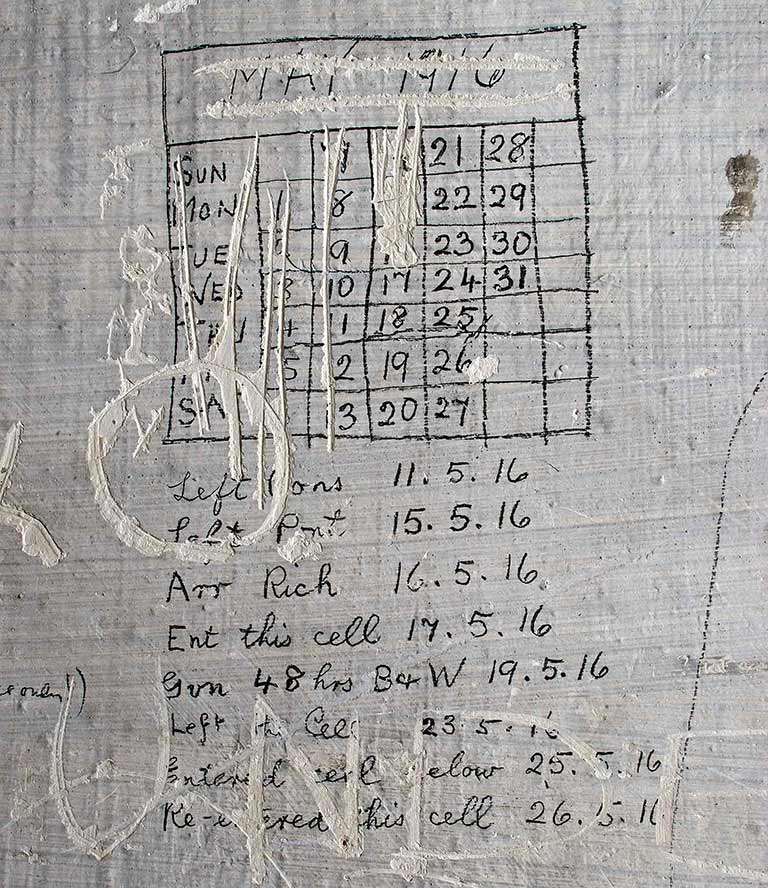 MAY 1916
SUN 21 28
MON 1 8 22 29
TUE 2 9 23 30
WED 3 10 17 24 31
4 11 18 25
5 12 19 26
SA 13 20 27
Left 11. 5. 16
Left Pont 15. 5. 16
Arr Rich 16. 5. 16.
Ent this cell 17. 5. 16
Gvn 48 hrs B & W 19. 5. 16
Left Cell 23 5. 16
Entered cell below 25. 5. 16
Re-entered this cell 26. 5. 16